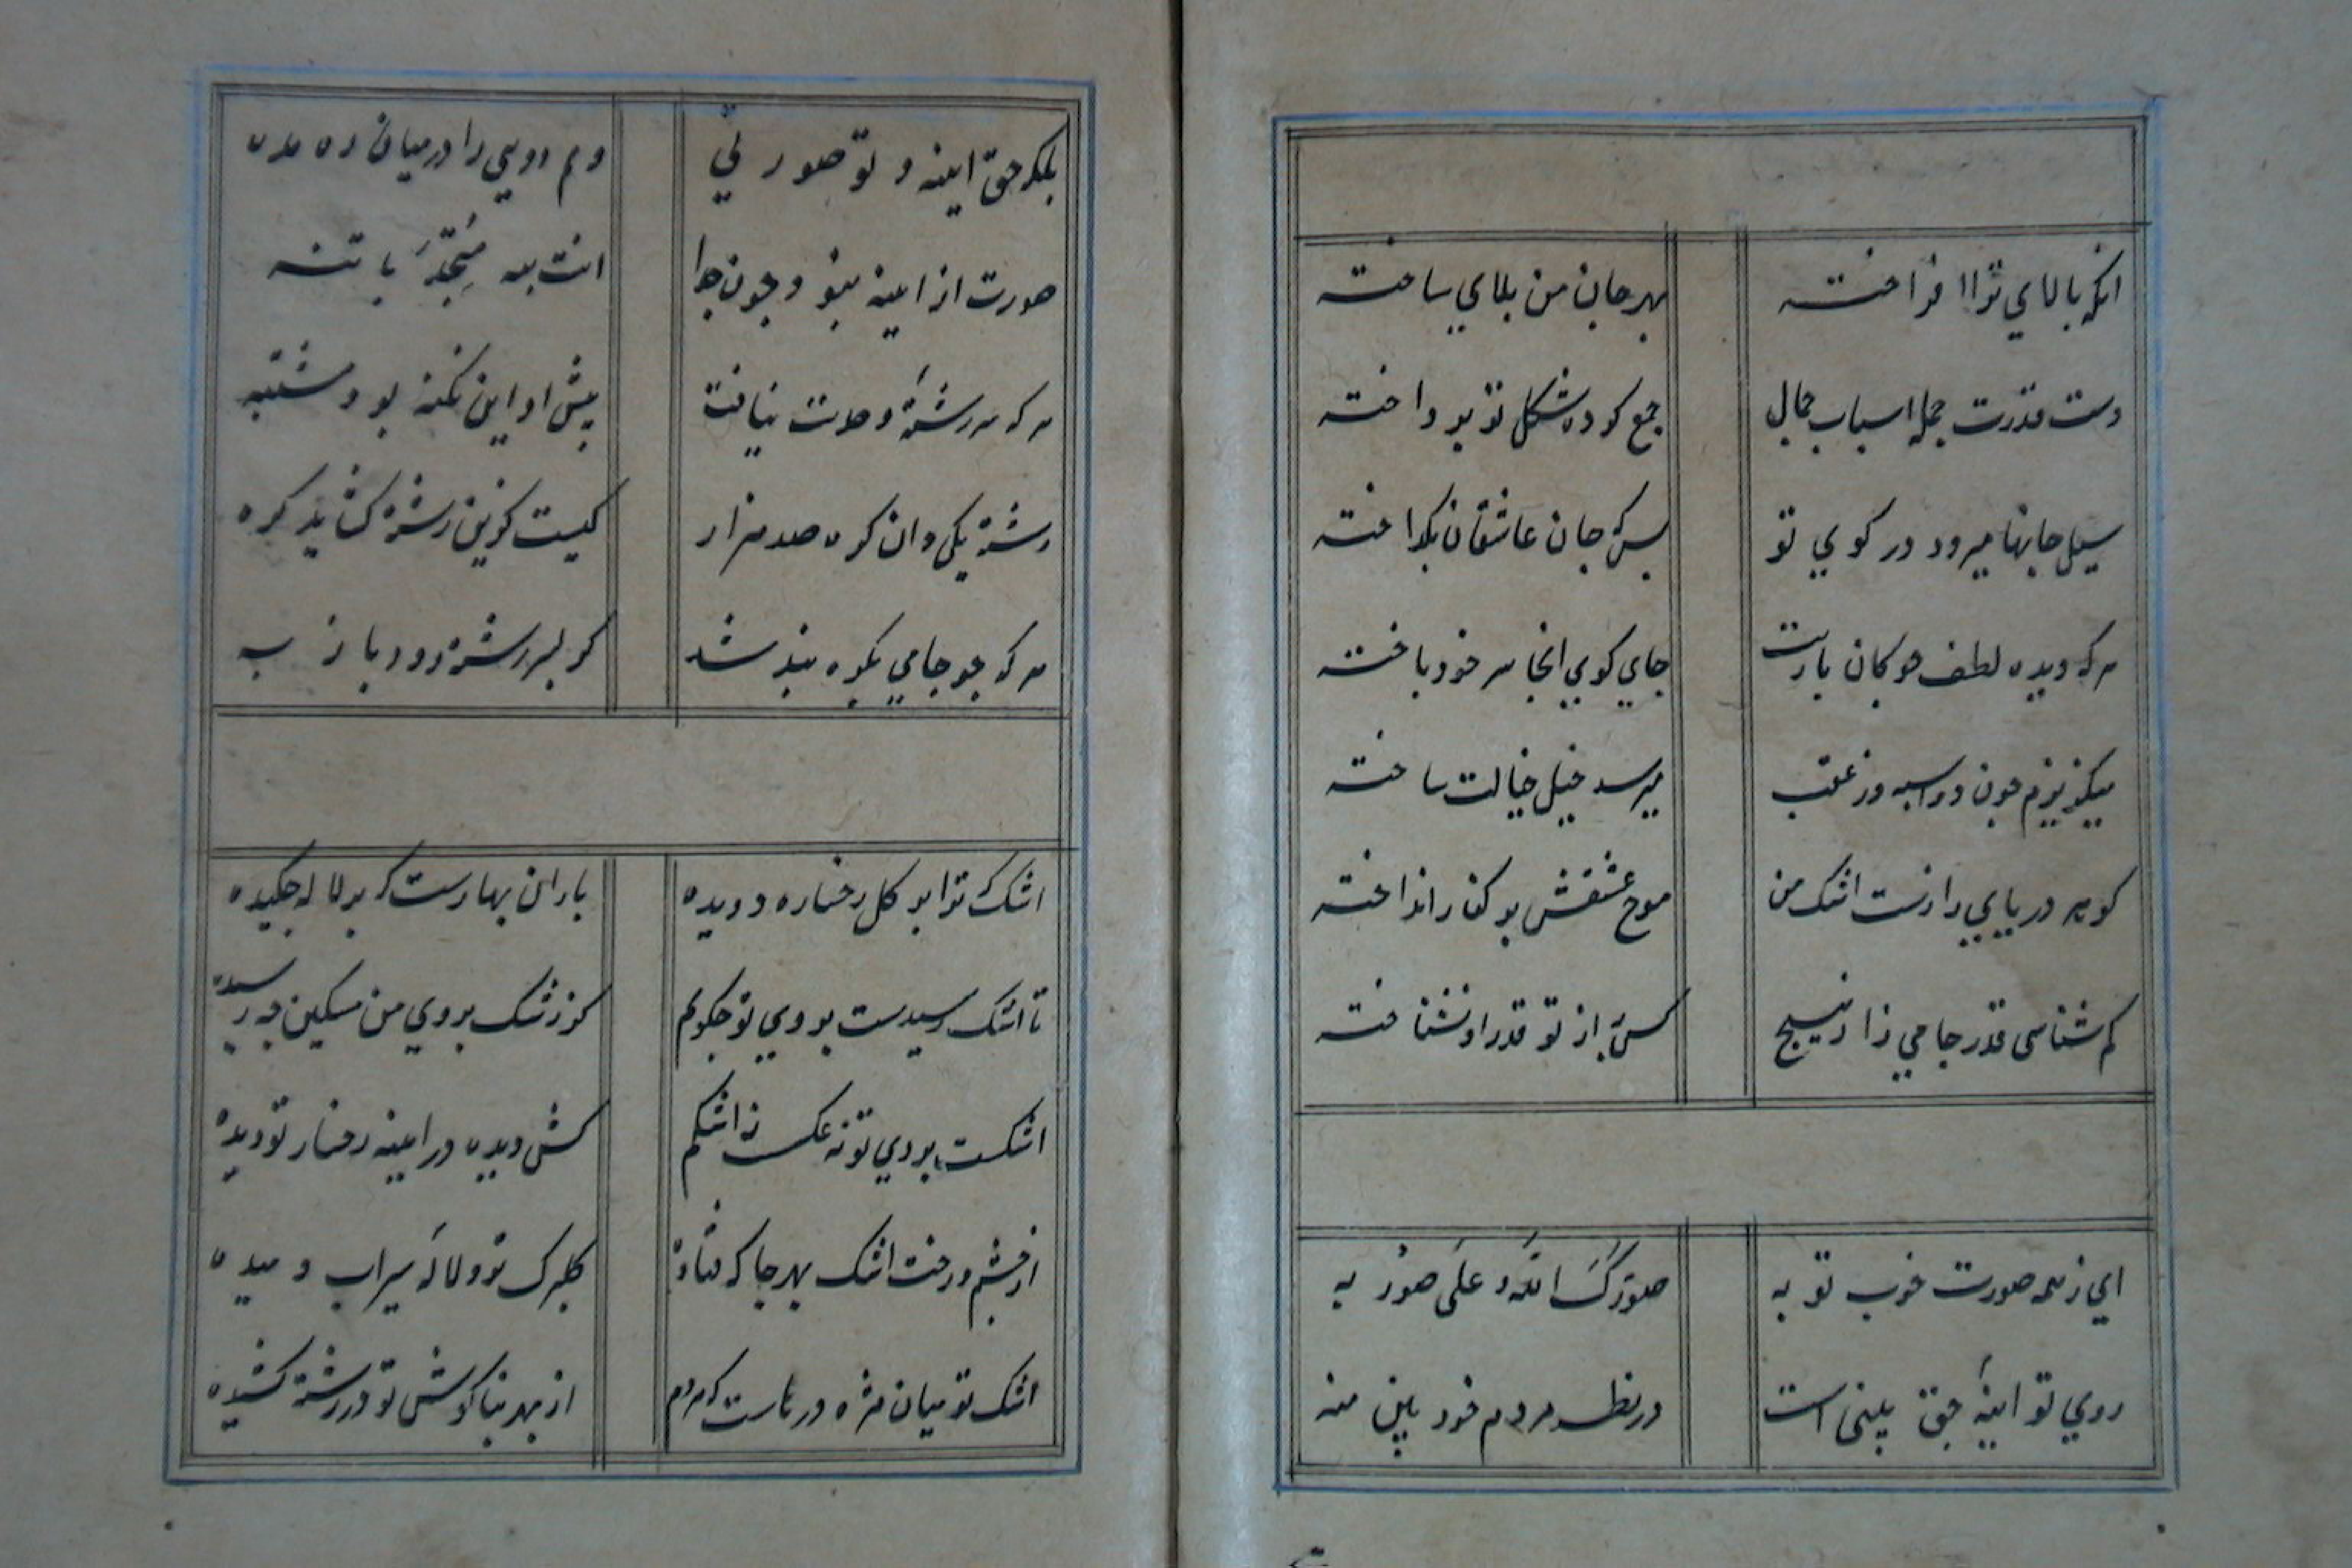 انکه بالای ترا افراخته بهر جان من بلای ساخته
دست قدرت جمله اسباب جمال جمع کرده شکل تو پرداخته
سیل جانها میرود در کوی تو بس که جان عاشقان بکداخته
هر که دیده لطف جوکان بازیت جای کوی انجا سر خود باخته
میکریزم چون دو اسبه در عقب میرسد خیل خیالت ساخته
کوهر دریایی رازست اشک من موج عشقش بر کنار انداخته
کم شناسی قدر جامی را ز هیچ کس به از تو قدر او نشناخته
ای ز همه صورت خوب تو به صورک الله علی صورته
روی تو اینه حق بینی است در نظر مردم خود بین منه
بلکه حق اینه و تو صورتی وهم دویی را درمیان ره مده
صورت از اینه نبود جدا انت به متحد فانتبه
هر که سر رشته وحدت نیافت پیش او این نکته بود مشتبه
رشته یکی دان کره صد هزار کیست کزین رشته کشاید کره
هر که چو جامی بکره بند شد کر بسر رشته رود باز به
اشک ترا بر کل رخساره دویده باران بهارست که بر لاله چکیده
تا اشک رسیدست بروی تو چکویم کز رشک بروی من مسکین چه رسیده
اشکست بروی تو نه عکس نه اشکم کش دیده در اینه رخسار تو دیده
از چشم و رخت اشک بهر جا که فتاده کلبرک تر و لاله سیراب دمیده
اشک تو میان مژه درهاست که مردم از بهر بناکوش تو در رشته کشیده